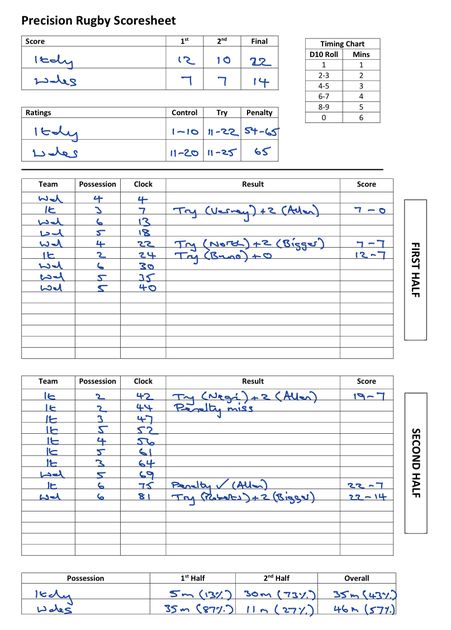 Precision Rugby Scoresheet
Score 1st 2nd Final
Italy 12 10 22
Wales 7 7 14
Timing Chart
D10 Roll Mins
1 1
2-3 2
4-5 3
6-7 4
8-9 5
0 6
Ratings Control Try Penalty
Italy 1-10 11-22 54-65
Wales 11-20 11-25 65
Team Possession Clock Result Score
Wal 4 4
It 3 7 Try (Varney) +2 (Allan) 7-0
Wal 6 13
Wal 5 18
Wal 4 22 Try (North) +2 (Bigger) 7-7
It 2 24 Try (Bruno) +0 12-7
Wal 6 30
Wal 5 35
Wal 5 40
FIRST HALF
Team Possession Clock Result Score
It 2 42 Try (Negri) +2 (Allan) 19-7
It 2 44 Penalty miss
It 3 47
It 5 52
It 4 56
It 5 61
It 3 64
Wal 5 69
It 6 75 Penalty ✓ (Allan) 22-7
Wal 6 81 Try (Roberts) +2 (Bigger) 22-14
SECOND HALF
Possession 1st Half 2nd Half Overall
Italy 5m (13%) 30m (73%) 35m (43%)
Wales 35m (87%) 11m (27%) 46m (57%)